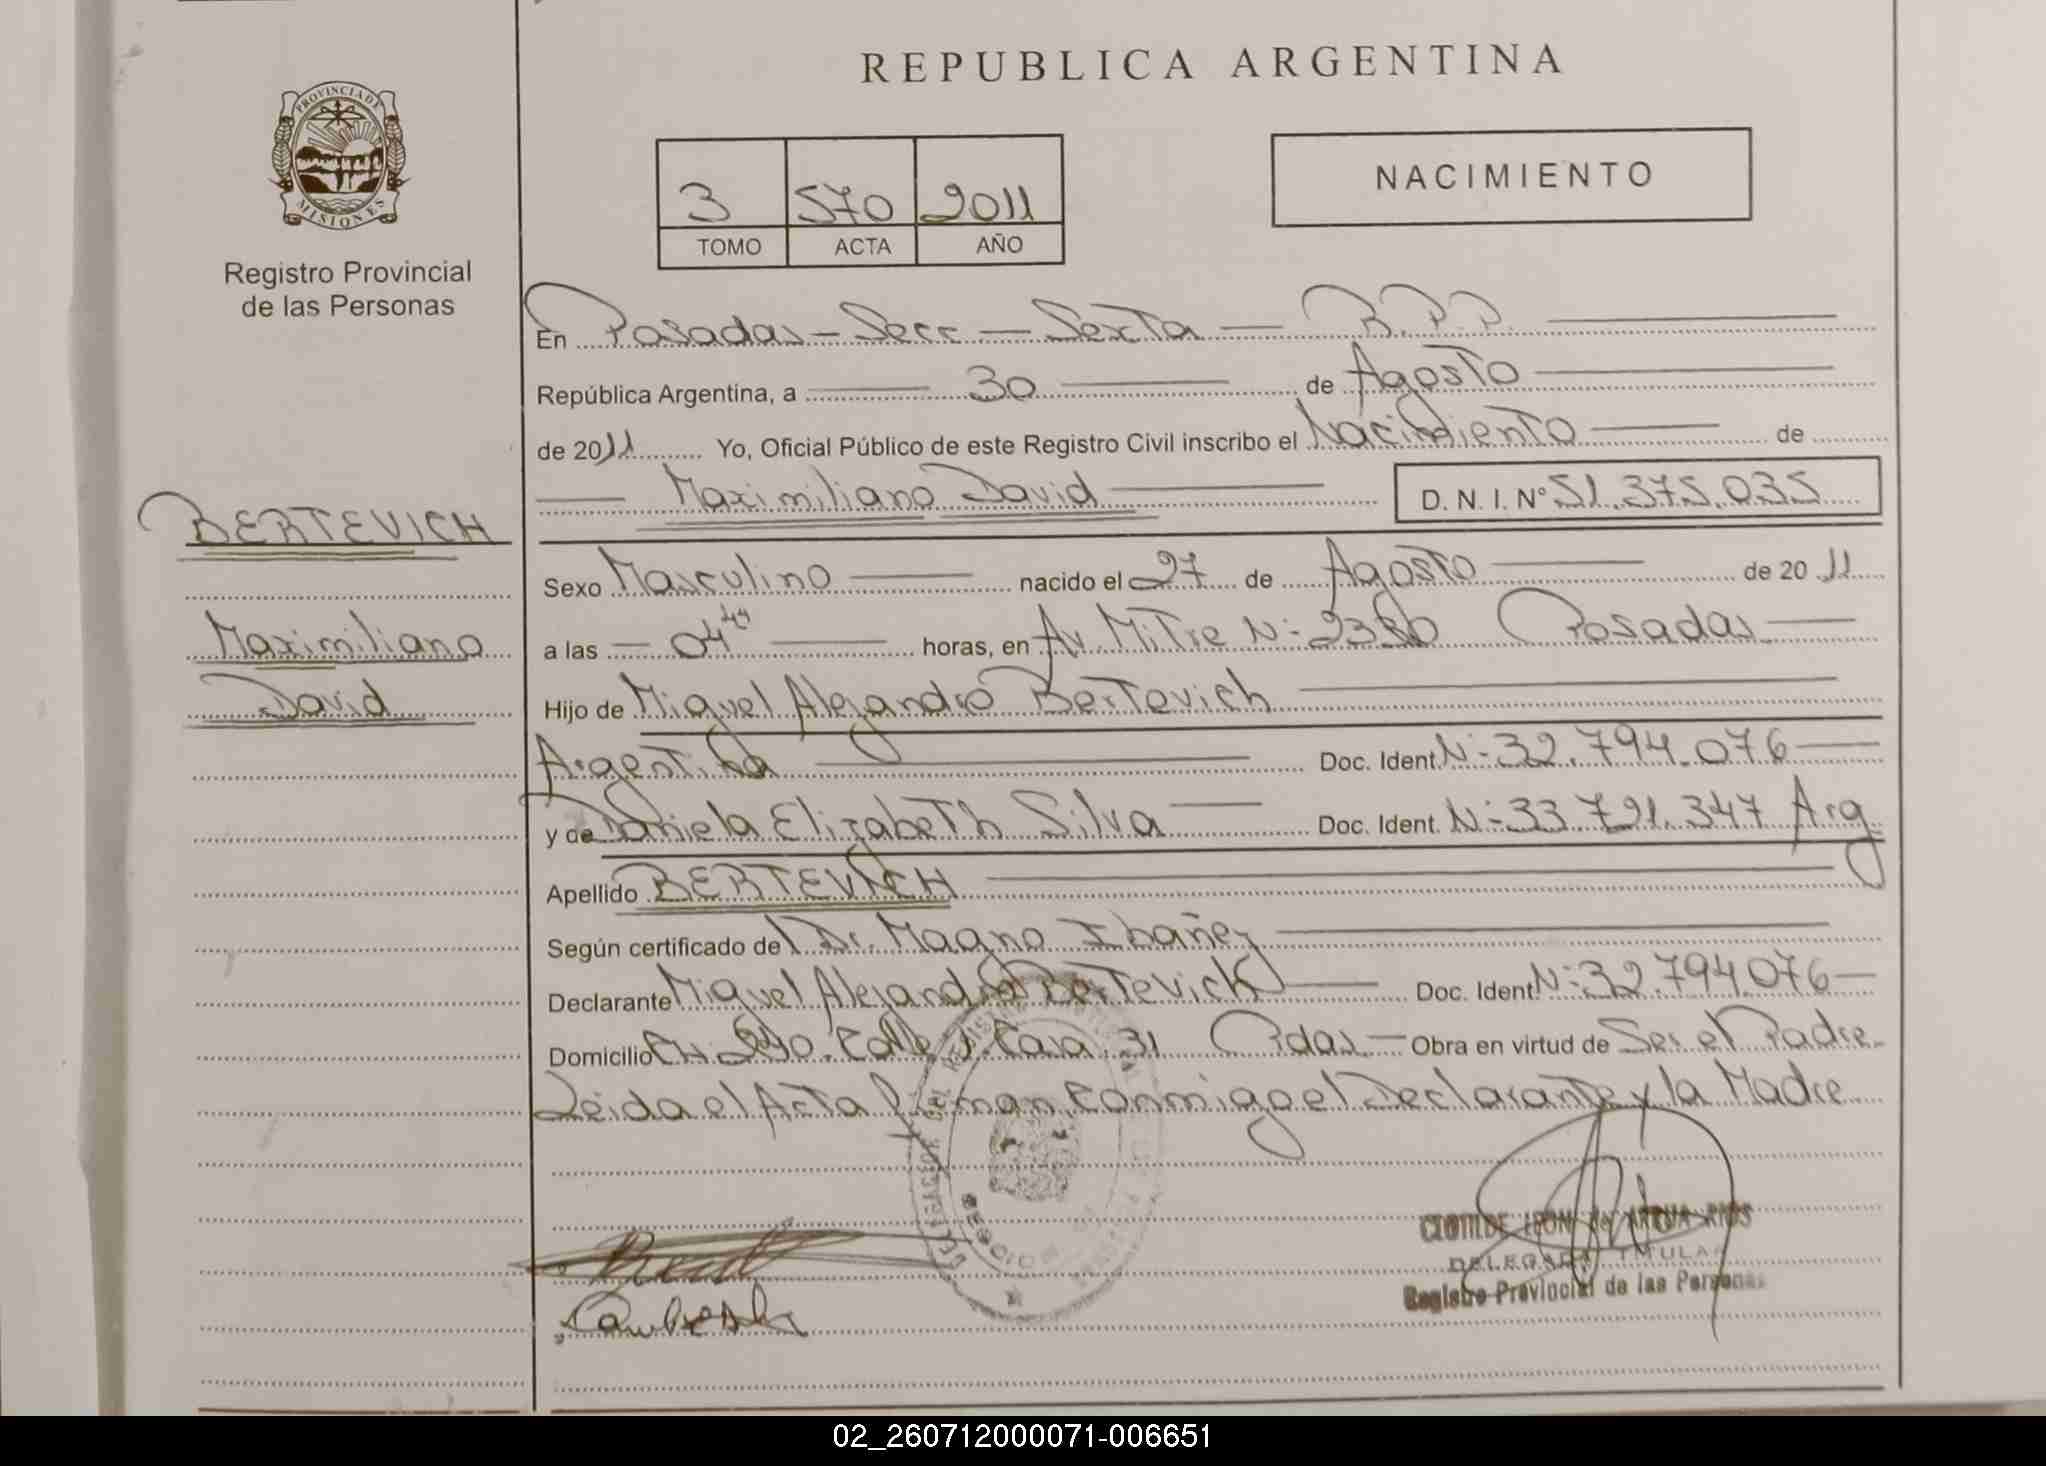 REPUBLICA ARGENTINA
PROVINCIA DE
MISIONES
Registro Provincial
de las Personas
3 570 2011
TOMO ACTA AÑO
NACIMIENTO
En Posadas – Secc – Sexta — R.P.P.
República Argentina, a 30 de Agosto
de 2011 Yo, Oficial Público de este Registro Civil inscribo el Nacimiento de
Maximiliano David D.N.I. Nº 51.375.035
BERTEVICH
Maximiliano
David
Sexo Masculino nacido el 27 de Agosto de 2011
a las – 04 horas, en Av. Mitre N: 2380 Posadas
Hijo de Miguel Alejandro Bertevich
Argentina Doc. Ident. N: 32.794.076
y de Daniela Elizabeth Silva Doc. Ident. N: 33.721.347 Arg
Apellido BERTEVICH
Según certificado de Dr. Magno Ibañez
Declarante Miguel Alejandro Bertevich Doc. Ident. N: 32.794.076
Domicilio Calle Casa 31 Pdas – Obra en virtud de Ser el Padre
Leida el Acta Firman Conmigo el Declarante y la Madre
CLOTILDE LEON de RIOS
DELEGADA TITULAR
Registro Provincial de las Personas
02_260712000071-006651